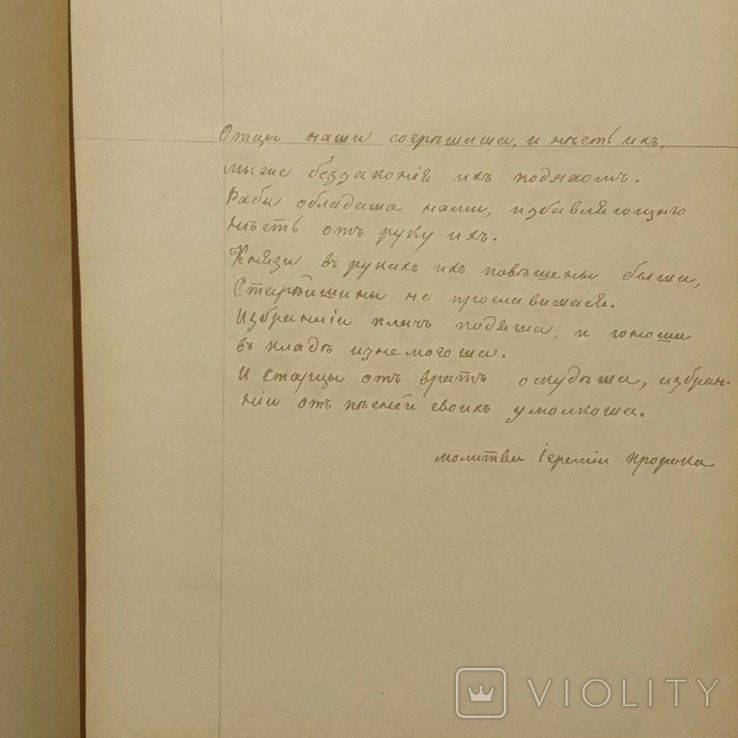 Отцы наши согрѣшиша, и нѣсть ихъ,
мы же беззаконія ихъ подяхомъ.
Рабы обладаша нами, избавляющаго
нѣсть отъ руку ихъ.
Князи въ рукахъ ихъ повѣшены быша,
Старѣйшины не прославишася.
Избранніи плачъ подяша, и юноши
въ кладѣ изнемогоша.
И старцы отъ вратъ оскудѣша, избран-
ніи отъ пѣсней своихъ умолкоша.
молитва Іереміи пророка
VIOLITY